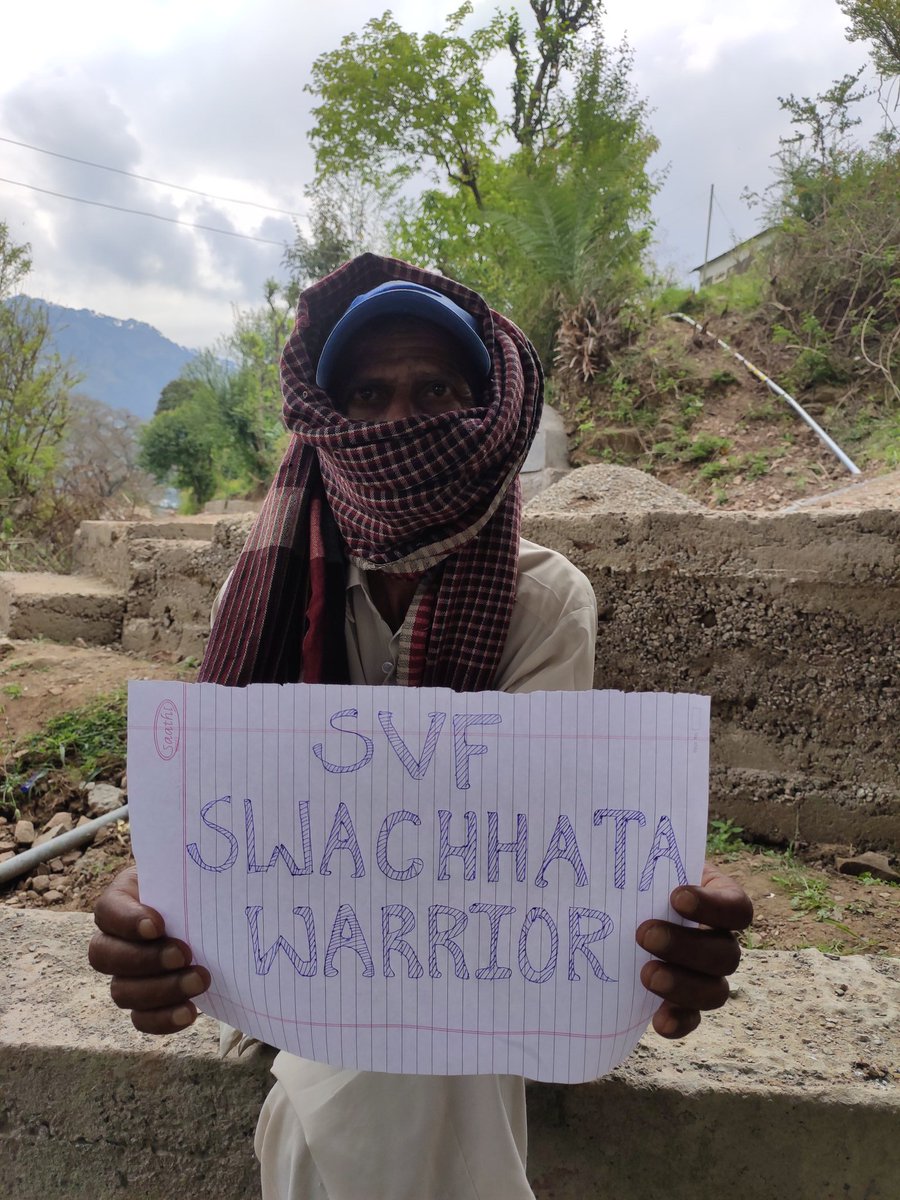 saathi
SVF
SWACHHATA
WARRIOR